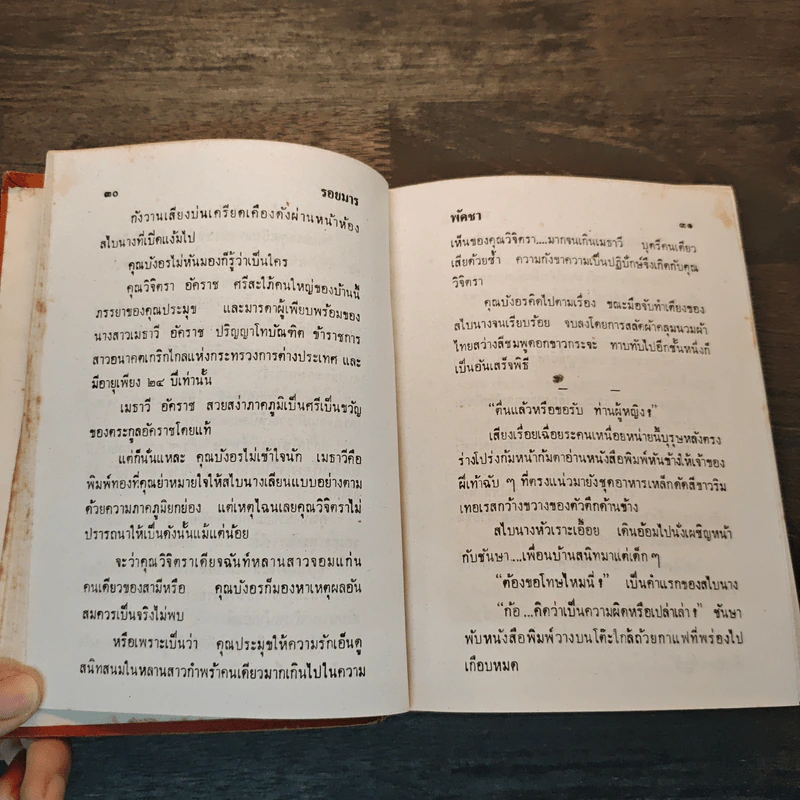 ๓๐ รอยมาร
กังวานเสียงบ่นเครียดเคืองดังผ่านหน้าห้อง
สไบนางที่เปิดแง้มไป
คุณบังอรไม่หันมองก็รู้ว่าเป็นใคร
คุณวิจิตรา อัคราช ศรีสะใภ้คนใหญ่ของบ้านนี้
ภรรยาของคุณประมุข และมารดาผู้เพียบพร้อมของ
นางสาวเมธาวี อัคราช ปริญญาโทบัณฑิต ข้าราชการ
สาวอนาคตเกริกไกลแห่งกระทรวงการต่างประเทศ และ
มีอายุเพียง ๒๔ ปีเท่านั้น
เมธาวี อัคราช สวยสง่าภาคภูมิเป็นศรีเป็นขวัญ
ของตระกูลอัคราชโดยแท้
แต่ก็นั่นแหละ คุณบังอรไม่เข้าใจนัก เมธาวีคือ
พิมพ์ทองที่คุณย่าหมายใจให้สไบนางเลียนแบบอย่างตาม
ด้วยความภาคภูมิยกย่อง แต่เหตุไฉนเลยคุณวิจิตราไม่
ปรารถนาให้เป็นดังนั้นแม้แต่น้อย
จะว่าคุณวิจิตราเดียจฉันท์หลานสาวจอมแก่น
คนเดียวของสามีหรือ คุณบังอรก็มองหาเหตุผลอัน
สมควรเป็นจริงไม่พบ
หรือเพราะเป็นว่า คุณประมุขให้ความรักเอ็นดู
สนิทสนมในหลานสาวกำพร้าคนเดียวมากเกินไปในความ
พัดชา ๓๑
เห็นของคุณวิจิตรา....มากจนเกินเมธาวี บุตรีคนเดียว
เสียด้วยซ้ำ ความกังขาความเป็นปฏิปักษ์จึงเกิดกับคุณ
วิจิตรา
คุณบังอรคิดไปตามเรื่อง ขณะมือจับทำเตียงของ
สไบนางจนเรียบร้อย จบลงโดยการสลัดผ้าคลุมนวมผ้า
ไทยสว่างสีชมพูดอกขาวกระจะ ทาบทับไปอีกชั้นหนึ่งก็
เป็นอันเสร็จพิธี
“ตื่นแล้วหรือขอรับ ท่านผู้หญิง?”
เสียงเรื่อยเฉื่อยระคนเหนื่อยหน่ายนี้บุรุษหลังตรง
ร่างโปร่งก้มหน้าก้มตาอ่านหนังสือพิมพ์หันข้างให้เจ้าของ
ฝีเท้าฉับ ๆ ที่ตรงแน่วมายังชุดอาหารเหล็กดัดสีขาวริม
เทอเรสกว้างขวางของตัวตึกด้านข้าง
สไบนางหัวเราะเอื้อย เดินอ้อมไปนั่งเผชิญหน้า
กับชันษา....เพื่อนบ้านสนิทมาแต่เด็กๆ
“ต้องขอโทษไหมนี่?” เป็นคำแรกของสไบนาง
“ก้อ...คิดว่าเป็นความผิดหรือเปล่าเล่า?” ชันษา
พับหนังสือพิมพ์วางบนโต๊ะใกล้ถ้วยกาแฟที่พร่องไป
เกือบหมด